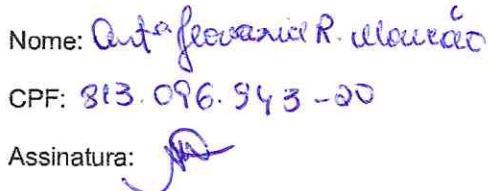 Nome: Antª Geovania R. Mourão
CPF: 813.096.943-20
Assinatura: